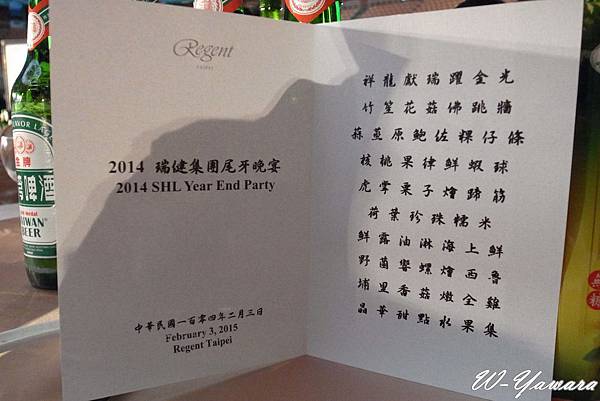 Regent
TAIPEI
2014 瑞健集團尾牙晚宴
2014 SHL Year End Party
中華民國一百零四年二月三日
February 3, 2015
Regent Taipei
祥龍獻瑞躍金光
竹笙花菇佛跳牆
蒜茸原鮑佐粿仔條
核桃果律鮮蝦球
虎掌栗子燴蹄筋
荷葉珍珠糯米
鮮露油淋海上鮮
野菌響螺燴西魯
埔里香菇燉全雞
晶華甜點水果集
啤酒
TAIWAN
BEER
W-Yawara